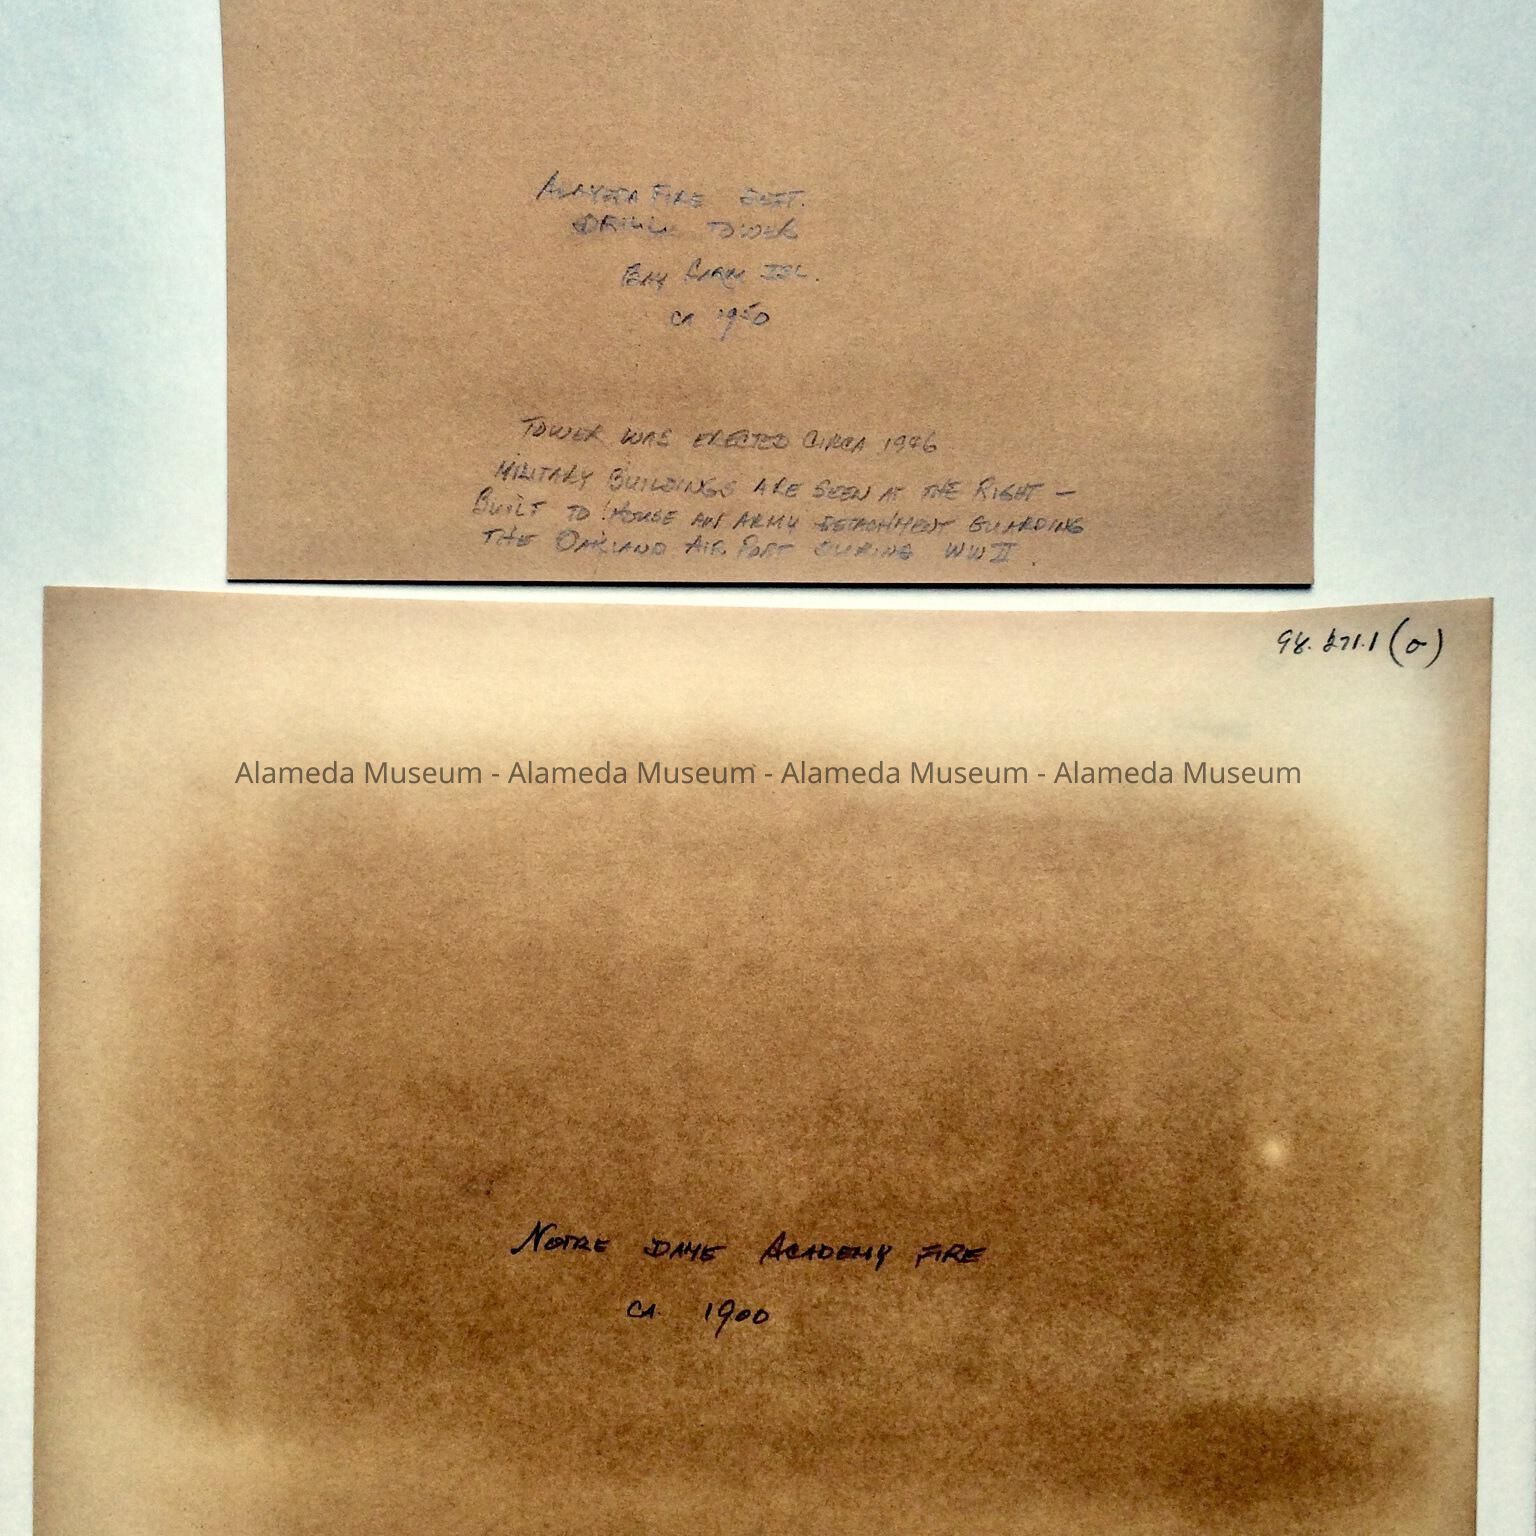 ALAMEDA FIRE DEPT.
DRILL TOWER
BAY FARM ISL.
CA 1950
TOWER WAS ERECTED CIRCA 1946
MILITARY BUILDINGS ARE SEEN AT THE RIGHT —
BUILT TO HOUSE AN ARMY DETACHMENT GUARDING
THE OAKLAND AIR PORT DURING WW II.
98.271.1 (o)
Alameda Museum - Alameda Museum - Alameda Museum - Alameda Museum
NOTRE DAME ACADEMY FIRE
CA. 1900